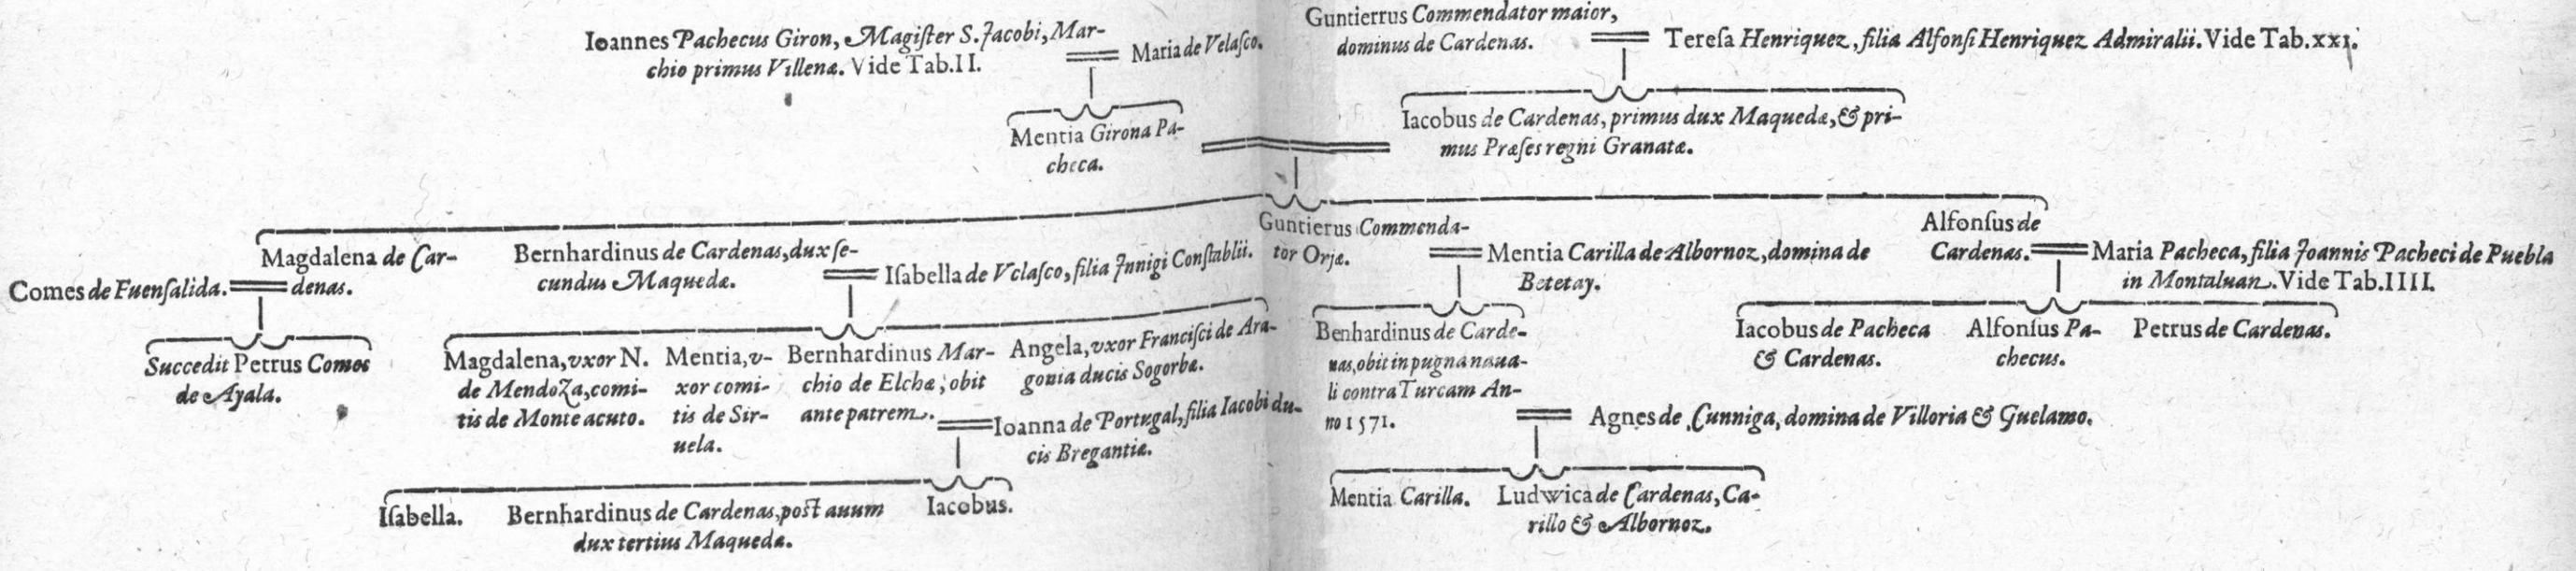 Ioannes Pachecus Giron, Magiſter S. Jacobi, Mar-
chio primus Villenæ. Vide Tab. II.
Maria de Velaſco.
Mentia Girona Pa-
checa.
Guntierrus Commendator maior,
dominus de Cardenas.
Tereſa Henriquez, filia Alfonſi Henriquez Admiralii. Vide Tab. xxi.
Iacobus de Cardenas, primus dux Maquedæ, & pri-
mus Præſes regni Granatæ.
Comes de Fuenſalida.
Magdalena de Car-
denas.
Bernhardinus de Cardenas, dux ſe-
cundus Maquedæ.
Iſabella de Velaſco, filia Innigi Conſtablii.
Guntierus Commenda-
tor Orjæ.
Mentia Carilla de Albornoz, domina de
Betetay.
Alfonſus de
Cardenas.
Maria Pacheca, filia Joannis Pacheci de Puebla
in Montaluan. Vide Tab. IIII.
Succedit Petrus Comes
de Ayala.
Magdalena, vxor N.
de Mendoza, comi-
tis de Monte acuto.
Mentia, v-
xor comi-
tis de Sir-
uela.
Bernhardinus Mar-
chio de Elchæ, obit
ante patrem.
Angela, vxor Franciſci de Ara-
gonia ducis Sogorbæ.
Ioanna de Portugal, filia Iacobi du-
cis Bregantiæ.
Benhardinus de Carde-
nas, obit in pugna naua-
li contra Turcam An-
no 1571.
Agnes de Cunniga, domina de Villoria & Guelamo.
Iacobus de Pacheca
& Cardenas.
Alfonſus Pa-
checus.
Petrus de Cardenas.
Iſabella.
Bernhardinus de Cardenas, poſt auum
dux tertius Maquedæ.
Iacobus.
Mentia Carilla.
Ludwica de Cardenas, Ca-
rillo & Albornoz.